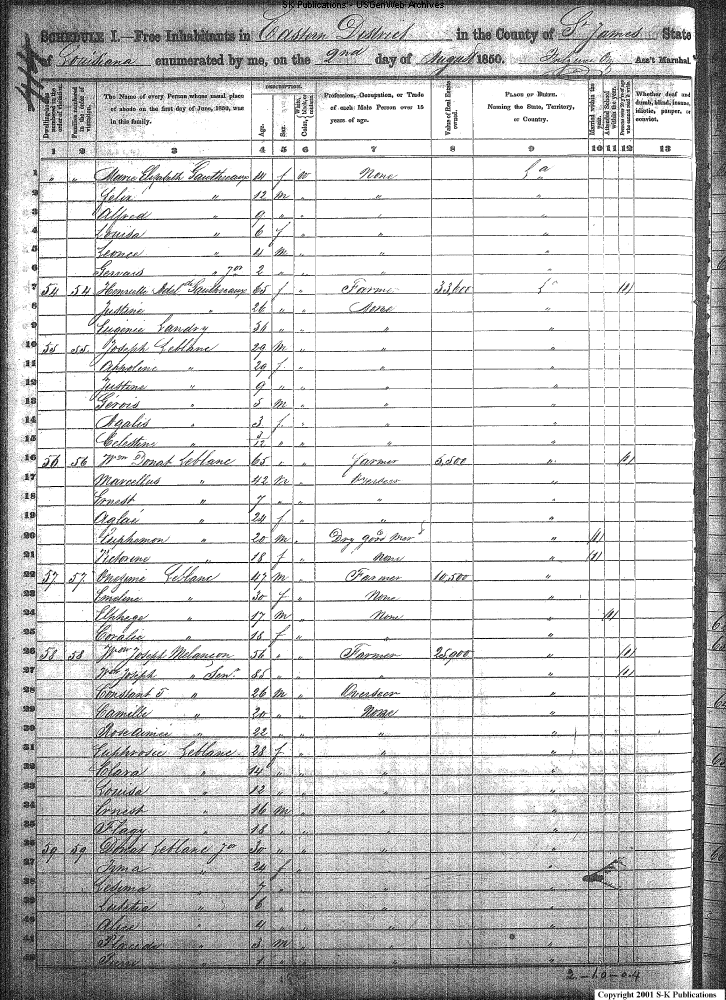 S-K Publications - USGenWeb Archives
SCHEDULE I.—Free Inhabitants in Eastern District in the County of St James State
of Louisiana enumerated by me, on the 2nd day of August 1850. Ass't Marshal.
Dwelling-houses numbered in the order of visitation.
Families numbered in the order of visitation.
The Name of every Person whose usual place of abode on the first day of June, 1850, was in this family.
DESCRIPTION.
Age.
Sex.
Color, White, black, or mulatto.
Profession, Occupation, or Trade of each Male Person over 15 years of age.
Value of Real Estate owned.
PLACE OF BIRTH. Naming the State, Territory, or Country.
Married within the year.
Attended School within the year.
Persons over 20 y'rs of age who cannot read & write.
Whether deaf and dumb, blind, insane, idiotic, pauper, or convict.
1 2 3 4 5 6 7 8 9 10 11 12 13
1 " " Marie Elizabeth Gauthreaux 14 f w None La
2 Felix " 12 m " " "
3 Alfred " 9 " " " "
4 Louisa " 6 f " " "
5 Leonce " 4 m " " "
6 " 2 " " "
7 54 54 Gauthreaux 65 f " Farmer /1/
8 Justine " 26 " " None "
9 Eugenie Landry 36 " " " "
10 55 55 Joseph Leblanc 29 m " "
11 Appoline " 29 f " " "
12 Justine " 9 " " " "
13 Gervis " 5 m " "
14 Agalis " 3 f " " "
15 Celestine " 3/12 " " " "
16 56 56 Wm Donat Leblanc 65 " " Farmer 5,500 " /1/
17 Marcellus " 42 m " Overseer "
18 Ernest " 7 " " " "
19 Aglaé " 24 f " "
20 Euphemon " 20 m " Dry goods Mer " /1/
21 Victorine " 18 f " None " /1/
22 57 57 Onezime Leblanc 47 m " Farmer 10,500 "
23 Emeline " 30 f " None "
24 Elphege " 17 m " None " /1/
25 Coralie " 18 f " "
26 58 58 Joseph Melancon 56 " " Farmer 25,900 " /1/
27 Joseph " Sen. 85 " " " /1/
28 Constant J " 26 m " Overseer "
29 Camille " 20 " " None "
30 Roseamiee " 22 " " " "
31 Euphrosie Leblanc 28 f " " "
32 Clara " 14 " " " "
33 Louisa " 12 " " " "
34 Ernest " 16 m " " "
35 " 18 " " " "
36 59 59 Donat Leblanc 30 " " "
37 Irma " 24 f " " "
38 Lesima " 7 " " " "
39 " 6 " " " "
40 Alice " 4 " " " "
41 Placide " 3 m " " "
42 " 1 " " " "
2-10-04
Copyright 2001 S-K Publications